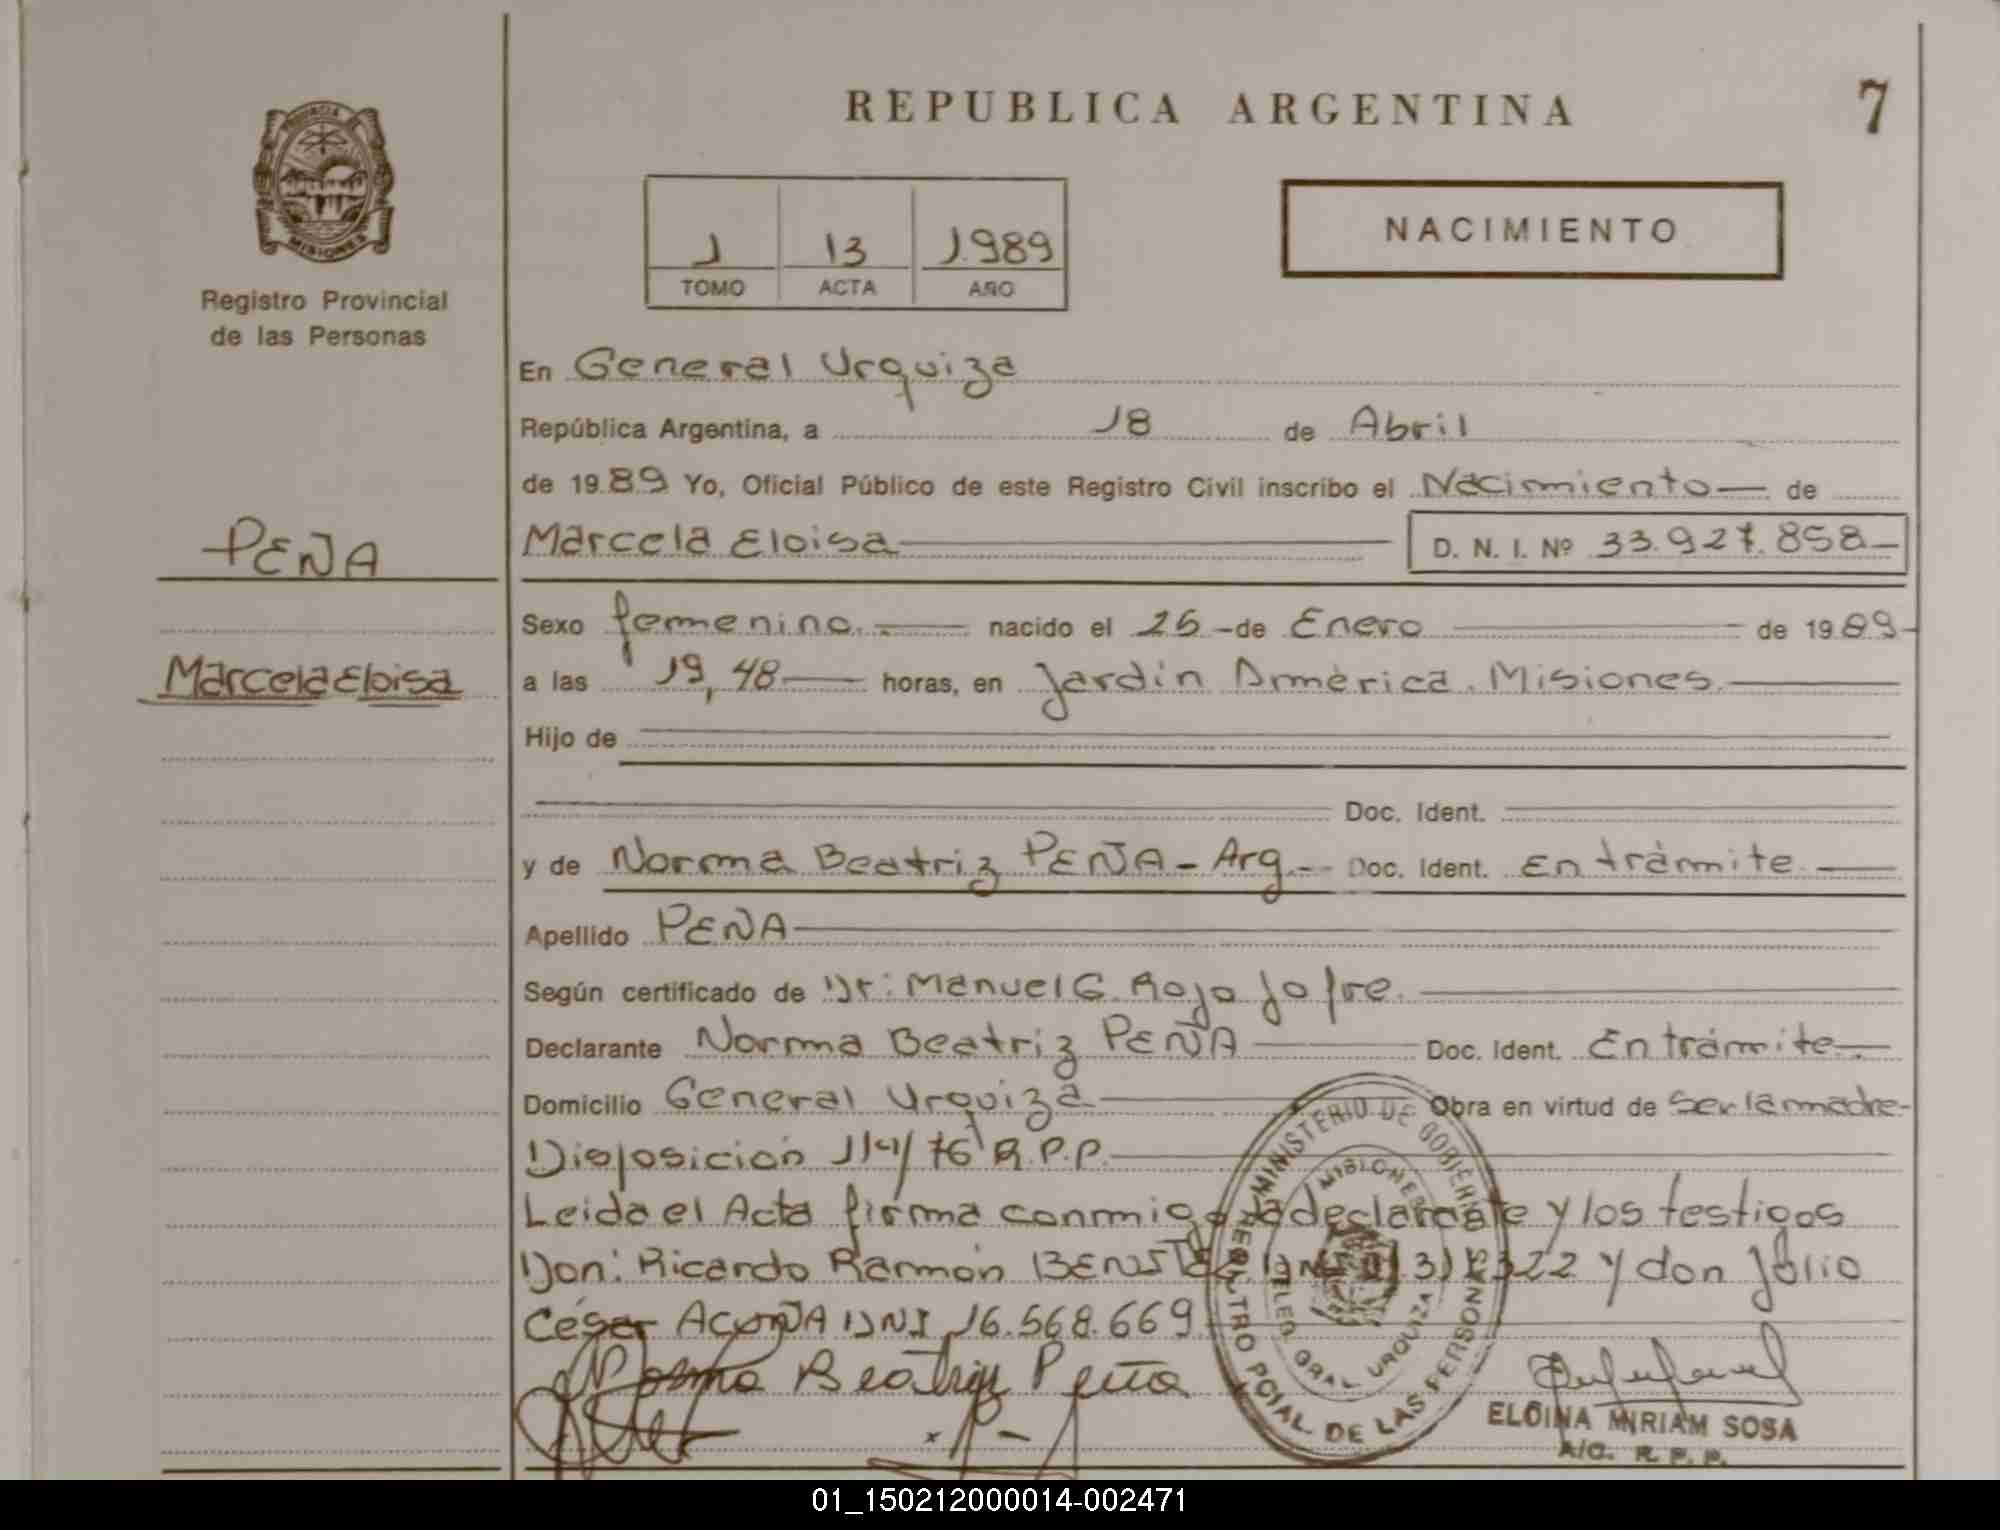 REPUBLICA ARGENTINA
7
PROVINCIA DE
MISIONES
Registro Provincial
de las Personas
1 13 1.989
TOMO ACTA AÑO
NACIMIENTO
En General Urquiza
República Argentina, a 18 de Abril
de 1989 Yo, Oficial Público de este Registro Civil inscribo el Nacimiento — de
PEÑA
Marcela Eloisa — D. N. I. Nº 33.927.858 —
Sexo femenino. — nacido el 26 - de Enero — de 1989 -
Marcela Eloisa
a las 19,48 — horas, en Jardín América. Misiones. —
Hijo de
Doc. Ident.
y de Norma Beatriz PEÑA - Arg. - Doc. Ident. En trámite. —
Apellido PEÑA —
Según certificado de Dr: Manuel G. Rojo Jofre. —
Declarante Norma Beatriz PEÑA — Doc. Ident. En trámite. —
Domicilio General Urquiza — Obra en virtud de ser la madre -
Disposición 114/76 R.P.P. —
Leida el Acta firma conmigo la declarante y los testigos
Don: Ricardo Ramón 322 y don Júlio
César ACUÑA DNI 16.568.669.
Norma Beatriz Peña
MINISTERIO DE GOBIERNO
MISIONES
REGISTRO PCIAL. DE LAS PERSONAS
DELEG. GRAL URQUIZA
ELOINA MIRIAM SOSA
A/C. R. P. P.
01_150212000014-002471